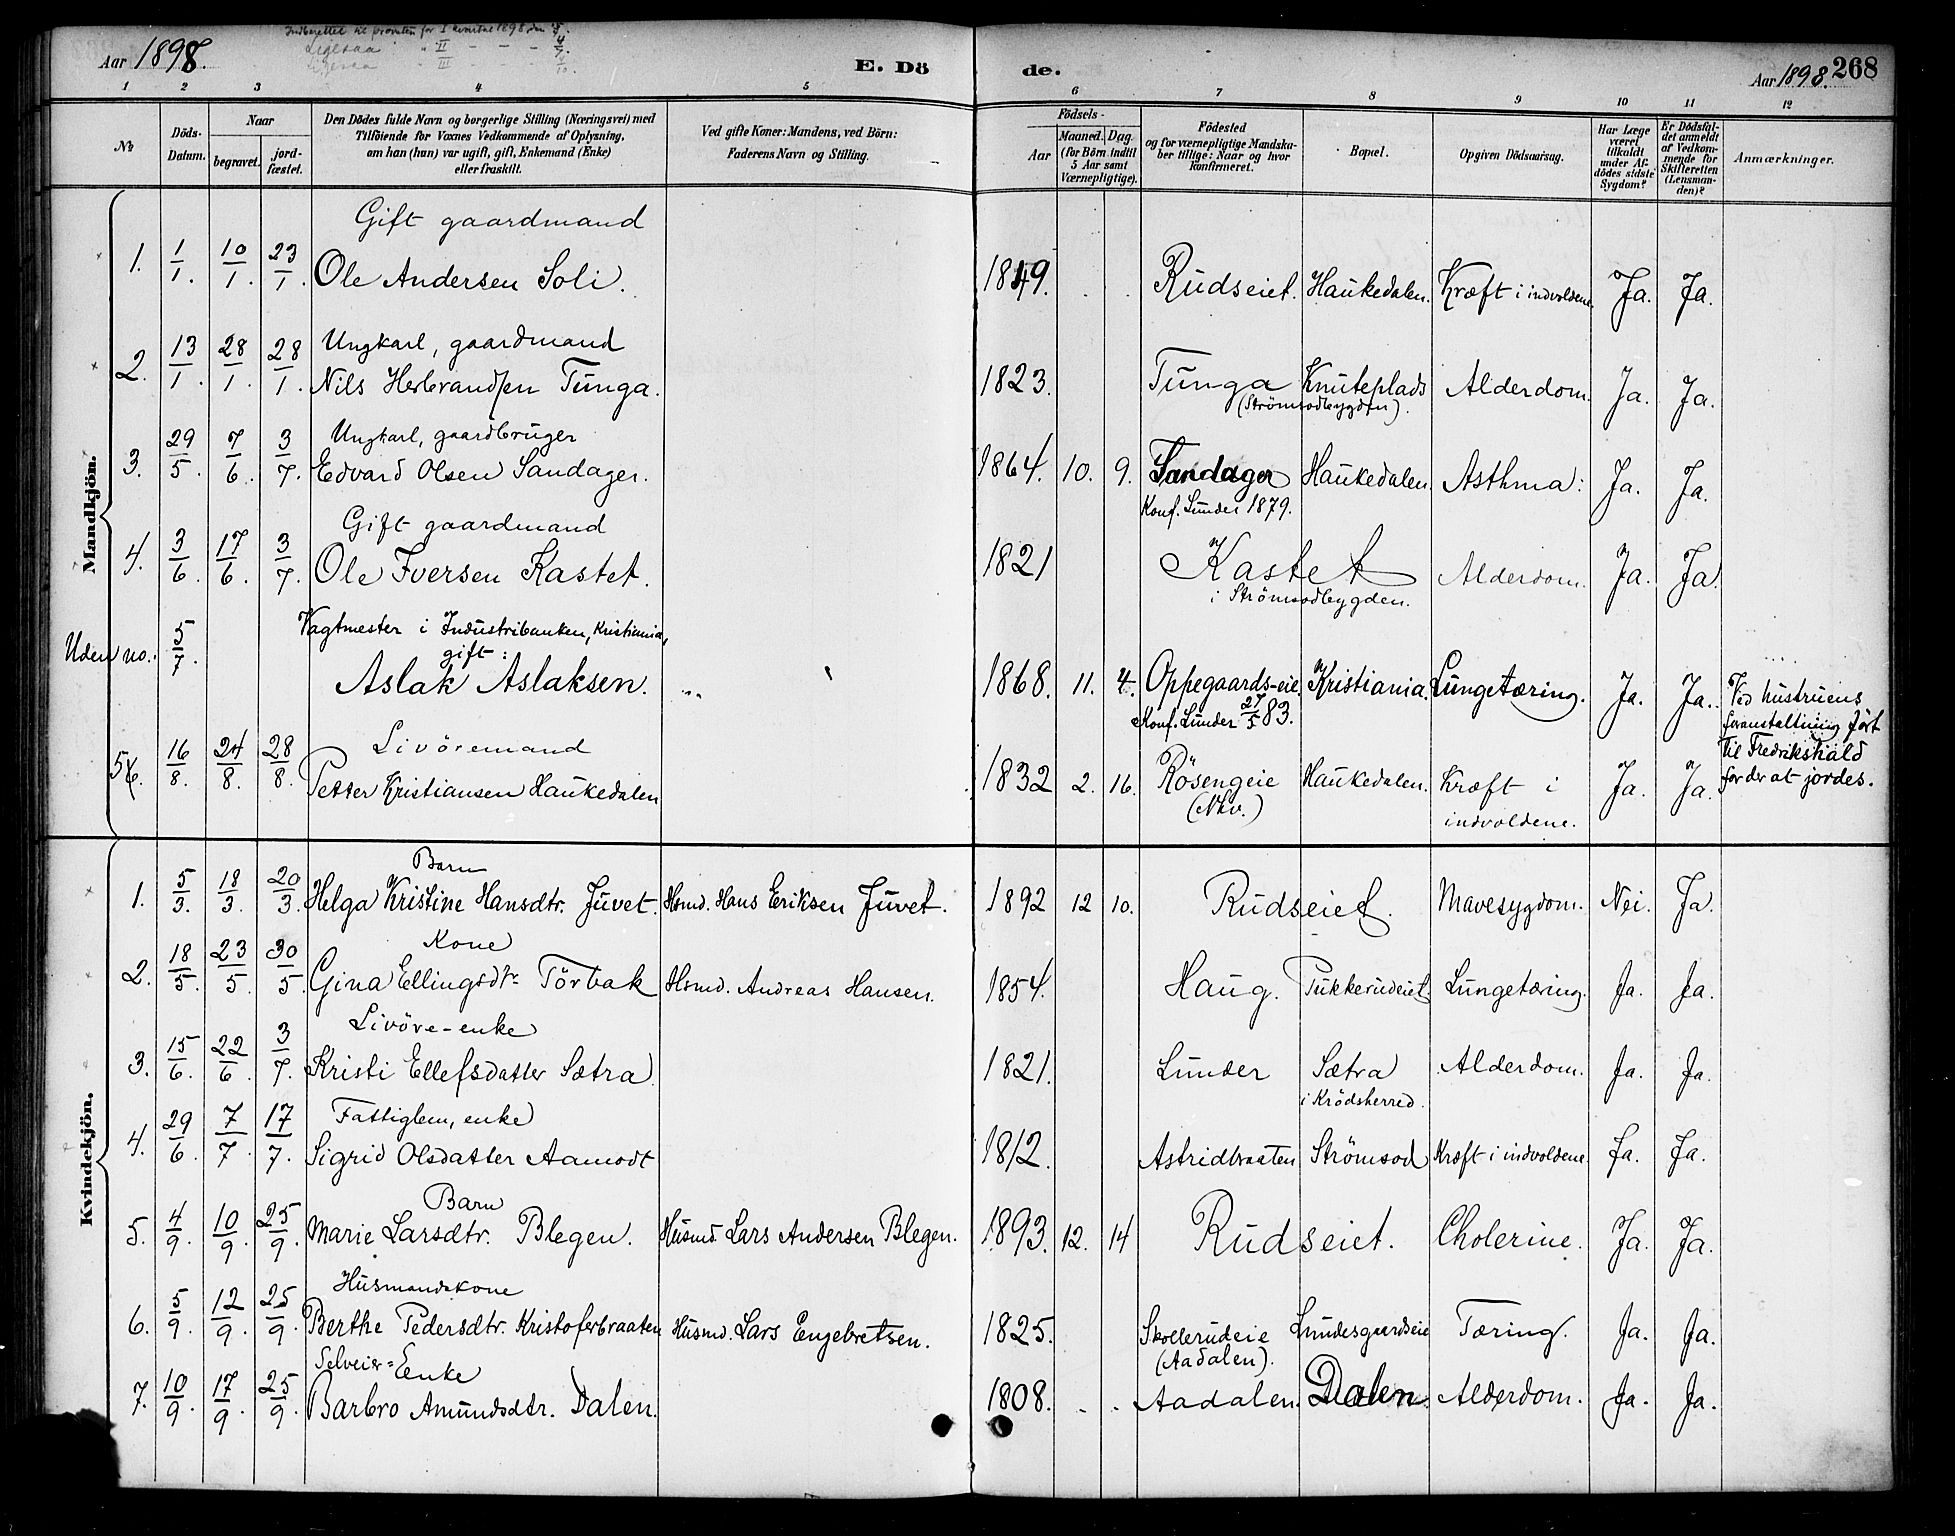 Aar 1898.
Indberettet til provsten for I kvartal 1898 den
Ligesaa " II - - -
Ligesaa " III - - -
E. Dö
de.
Aar 1898.
268
1 2 3 4 5 6 7 8 9 10 11 12
No
Döds-Datum.
Naar
begravet.
jord-fæstet.
Den Dödes fulde Navn og borgerlige Stilling (Næringsvei) med
Tilföiende for Voxnes Vedkommende af Oplysning,
om han (hun) var ugift, gift, Enkemand (Enke)
eller fraskilt.
Ved gifte Koner: Mandens, ved Börn:
Faderens Navn og Stilling.
Födsels-
Aar
Maaned. Dag.
(for Börn indtil
5 Aar samt
Værnepligtige).
Födested
og for værnepligtige Mandska-
ber tillige: Naar og hvor
konfirmeret.
Bopæl.
Opgiven Dödsaarsag.
Har Læge
været
tilkaldt
under Af-
dödes sidste
Sygdom?
Er Dödsfal-
det anmeldt
af Vedkom-
mende for
Skifteretten
(Lensman-
den)?
Anmærkninger.
Mandkjön.
Gift gaardmand
1. 1/1. 10/1. 23/1. Ole Andersen Soli. 1849. . . Rudseiet. Haukedalen. Kræft i indvoldene. Ja. Ja.
Ungkarl, gaardmand
2. 13/1. 28/1. 28/1. Nils Herbrandsen Tunga. 1823. Tunga Knuteplads Alderdom. Ja. Ja.
(Strömsodbygden).
Ungkarl, gaardbruger
3. 29/5. 7/6. 3/7. Edvard Olsen Sandager. 1864. 10. 9. Sandager Haukedalen. Asthma: Ja. Ja.
Konf. Lunder 1879.
Gift gaardmand
4. 3/6. 17/6. 3/7. Ole Iversen Kastet. 1821 Kastet Alderdom. Ja. Ja
i Strömsodbygden.
Vagtmester i Industribanken, Kristiania,
gift:
Uden no. 5/7. Aslak Aslaksen. 1868. 11. 4. Oppegaards-eie Kristiania. Lungetæring. Ja. Ja.
Konf. Lunder 27/5 83.
Ved hustruens
foranstaltning fört
til Fredrikshald
for der at jordes.
Livöremand
5. 16/8. 24/8. 28/8. Petter Kristiansen Haukedalen 1832 2. 16. Rösengeie Haukedalen. Kræft i Ja. Ja.
(Nkv.) indvoldene.
Kvindekjön.
Barn
1. 5/3. 18/3. 20/3. Helga Kristine Hansdtr. Juvet. Hsmd. Hans Eriksen Juvet. 1892 12 10. Rudseiet. Mavesygdom. Nei. Ja.
Kone
2. 18/5. 23/5. 30/5. Gina Ellingsdtr. Törbak Hsmd. Andreas Hansen. 1854. Haug. Pukkerudeiet Lungetæring. Ja. Ja.
Livöre-enke
3. 15/6. 22/6. 3/7. Kristi Ellefsdatter Sætra 1821. Lunder Sætra Alderdom. Ja. Ja.
i Krödsherred.
Fattiglem, enke
4. 29/6. 7/7. 17/7. Sigrid Olsdatter Aamodt 1812. Astridbraaten Strömsod Kræft i indvoldene. Ja. Ja.
Barn
5. 4/9. 10/9. 25/9. Marie Larsdtr. Blegen. Husmd. Lars Andersen Blegen. 1893. 12. 14 Rudseiet. Cholerine. Ja. Ja.
Husmandskone
6. 5/9. 12/9. 25/9. Berthe Pedersdtr. Kristoferbraaten Husmd. Lars Engebretsen. 1825. Skollerudeie Lundesgaardseie Tæring. Ja. Ja.
(Aadalen).
Selveier-Eenke
7. 10/9. 17/9. 25/9. Barbro Amundsdtr. Dalen. 1808. . . Aadalen. Dalen. Alderdom. Ja. Ja.